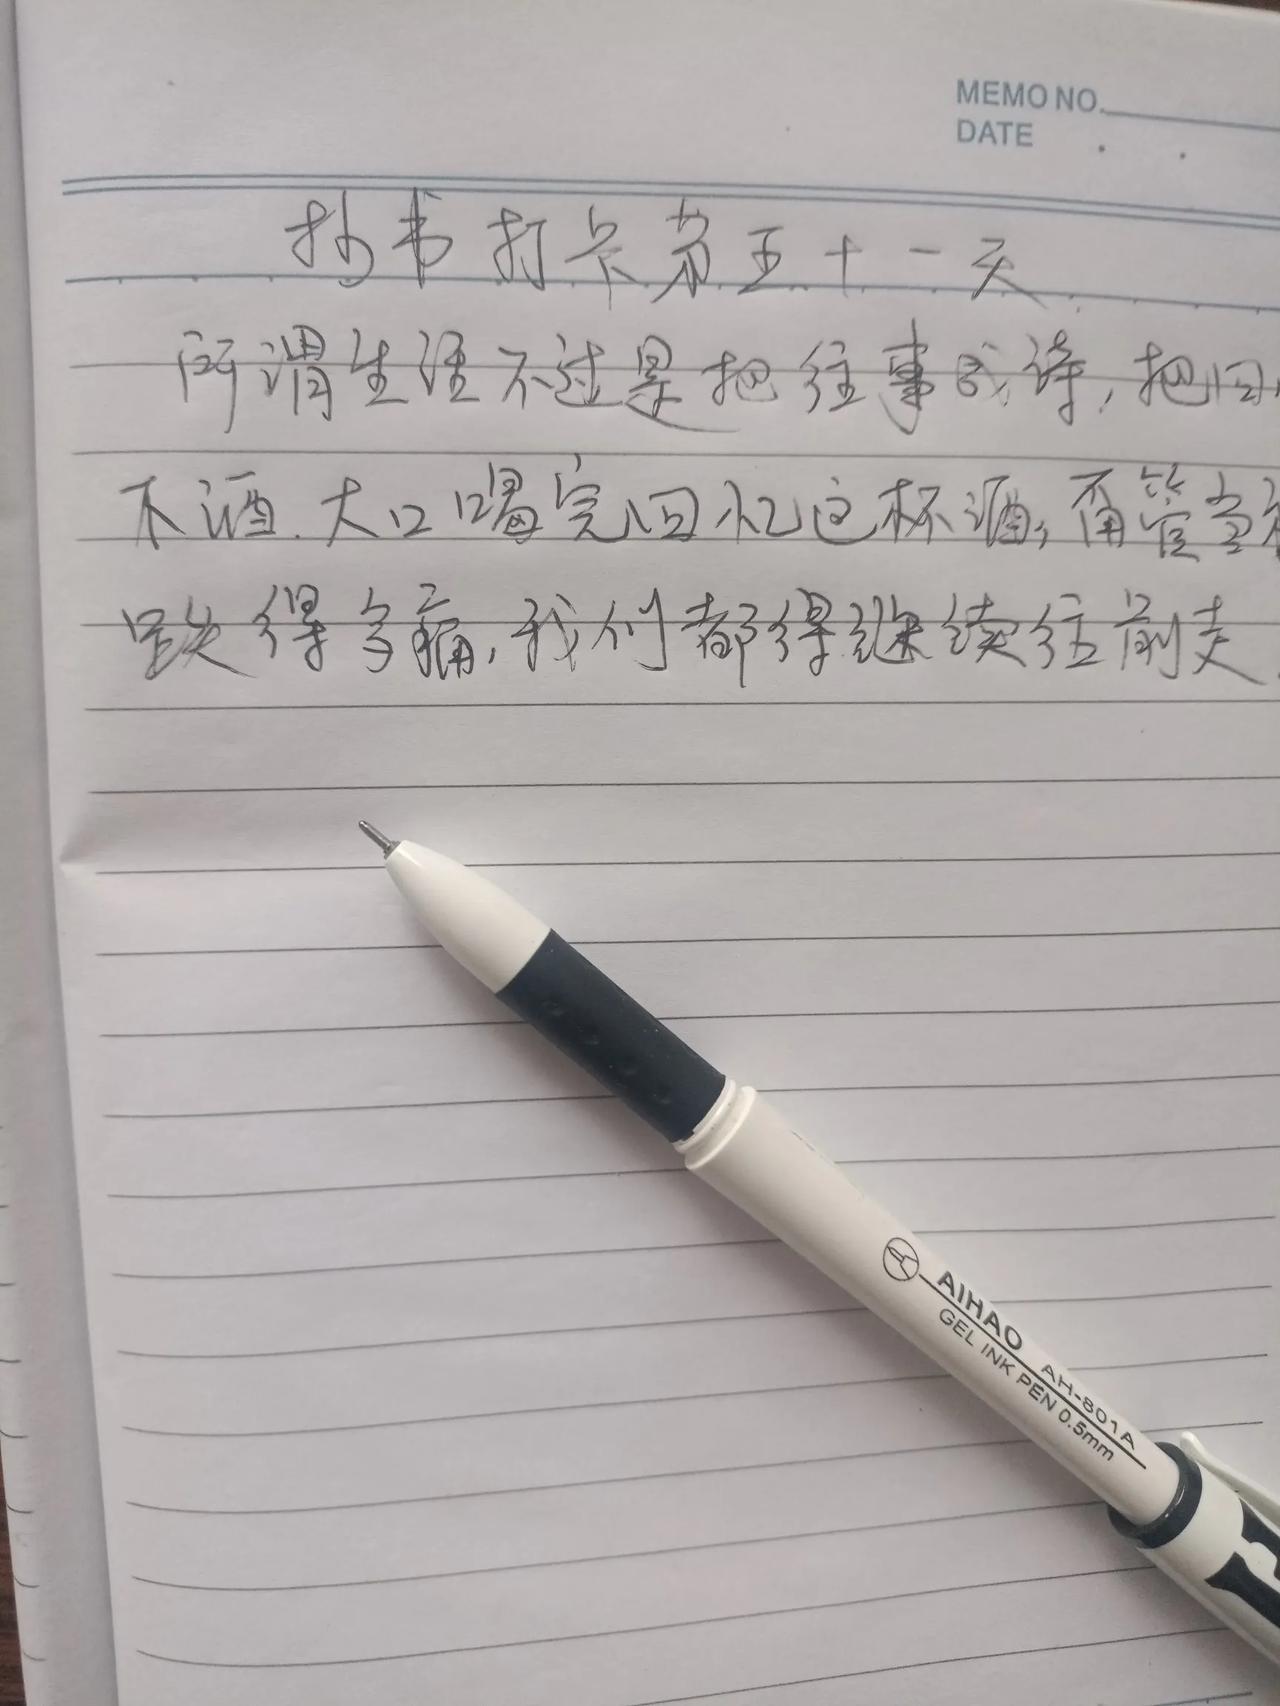 MEMO NO.
DATE
抄书打卡第五十一天
所谓生活不过是把往事成诗,把回
下酒.大口喝完回忆这杯酒,不管当初
跌得多痛,我们都得继续往前走.
AIHAO AH-801A
GEL INK PEN 0.5mm